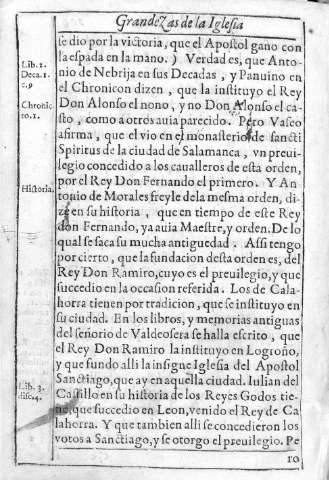 Grandezas de la Iglesia
se dio por la victoria, que el Apostol gano con
la espada en la mano.) Verdad es, que Anto-
nio de Nebrija en sus Decadas, y Panuino en
el Chronicon dizen, que la instituyo el Rey
Don Alonso el nono, y no Don Alonso el ca-
sto, como a otros auia parecido. Pero Vasco
afirma, que el vio en el monasterio de sancti
Spiritus de la ciudad de Salamanca, vn preui-
legio concedido a los caualleros de esta orden,
por el Rey Don Fernando el primero. Y An
tonio de Morales freyle dela mesma orden, di-
ze en su historia, que en tiempo de este Rey
don Fernando, ya auia Maestre, y orden. De lo
qual se saca su mucha antiguedad. Assi tengo
por cierto, que la fundacion desta orden es, del
Rey Don Ramiro, cuyo es el preuilegio, y que
succedio en la occasion referida. Los de Cala-
horra tienen por tradicion, que se instituyo en
su ciudad. En los libros, y memorias antiguas
del señorio de Valdeosera se halla escrito, que
el Rey Don Ramiro la instituyo en Logroño,
y que fundo alli la insigne Iglesia del Apostol
Sanctiago, que ay en aquella ciudad. Iulian del
Castillo en su historia de los Reyes Godos tie-
ne, que succedio en Leon, venido el Rey de Ca
lahorra. Y que tambien alli se concedieron los
votos a Sanctiago, y se otorgo el preuilegio. Pe
ro
Lib. 1.
Deca. 1.
c. 9
Chroni-
co. 1.
Historia.
Lib. 3.
disc. 4.